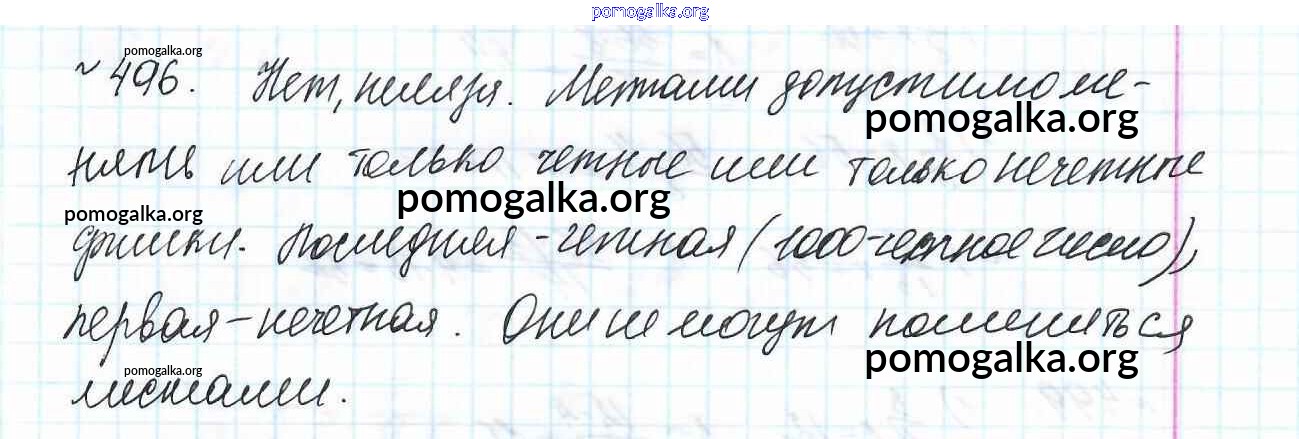 pomogalka.org
pomogalka.org
№ 496. Нет, нельзя. Местами допустимо ме-
pomogalka.org
нять или только четные или только нечетные
pomogalka.org
pomogalka.org
фишки. Последняя - четная (1000-четное число),
первая - нечетная. Они не могут поменяться
pomogalka.org
pomogalka.org
местами.